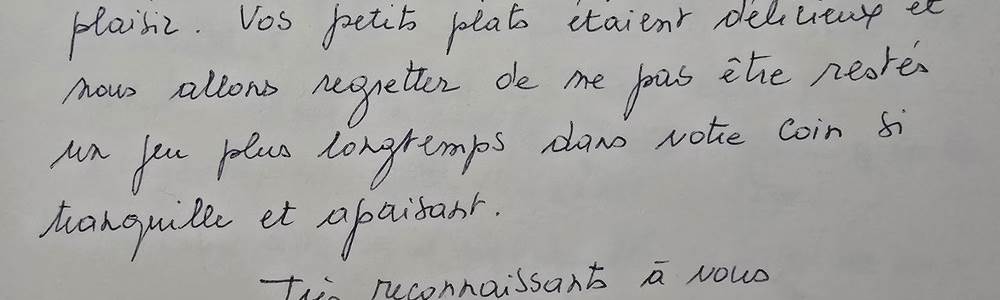 plaisir. Vos petits plats étaient délicieux et
nous allons regretter de ne pas être restés
un peu plus longtemps dans votre coin si
tranquille et apaisant.
Très reconnaissants à vous